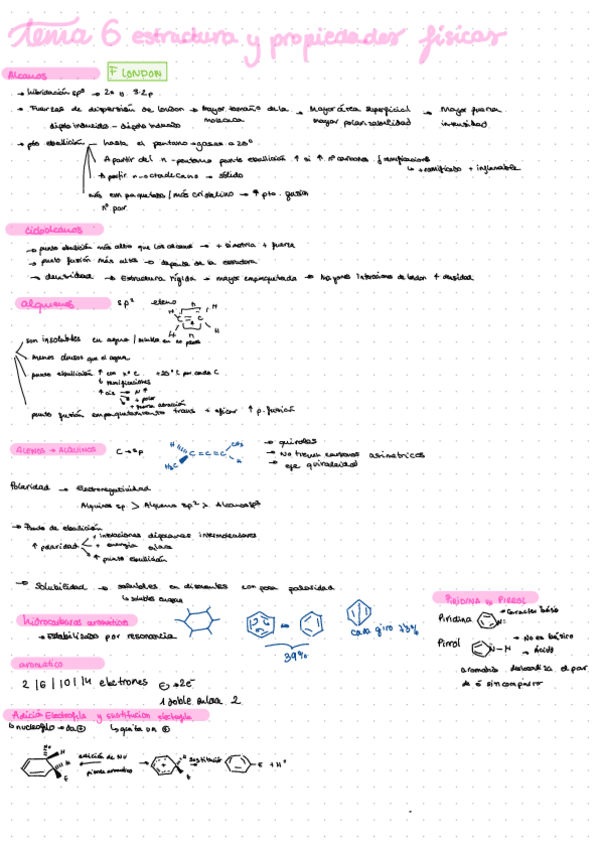 tema 6 estructura y propiedades físicas
Alcanos F LONDON
→ hibridación sp³
→ Fuerzas de dispersión de london → Mayor tamaño de la molécula → Mayor área superficial mayor polarizabilidad → Mayor fuerza intensidad
dipolo inducido - dipolo inducido
→ pto ebullición — hasta el pentano → gases a 20°
A partir del n-pentano punto ebullición ↑ si ↑ nº carbonos ramificaciones
↳ + ramificado + inflamable
A partir n-octadecano → sólido
más empaquetado / más cristalino → ↑ pto. fusión
nº par
cicloalcanos
→ punto ebullición más alto que los alcanos → + simetria + fuerza
→ punto fusión más alto → depende de la estructura
→ densidad → Estructura rígida → mayor empaquetada → Mayores interaciones de london + densidad
alquenos sp² eteno
H H
C = C
H H
son insolubles en agua
menos densos que el agua
punto ebullición ↑ con nº C +20°C por cada C
ramificaciones
↑ cis → + polar
punto fusión empaquetamiento trans + eficaz ↑ p. fusión
ALENOS → ALQUINOS C → sp
H C = C = C CH₃
H₃C H
→ quirales
→ No tienen carbonos asimetricos
→ eje quiralidad
Polaridad → Electronegatividad
Alquinos sp > Alquenos sp² > Alcanos sp³
→ Punto de ebullición
↑ polaridad
+ energia
↑ punto ebullición
→ Solubilidad → solubles en disolventes con poca polaridad
hidrocarburos aromáticos
→ Estabilizado por resonancia
39%
cada giro 73%
PIRIDINA vs PIRROL
Piridina → Caracter básico
N:
Pirrol N-H → No es básico
→ ácido
aromatico deslocaliza el par
de é sin compartir
aromatico
2 / 6 / 10 / 14 electrones → 2e⁻
1 doble enlace 2
Adición Electrofila y sustitucion electrofila
↳ nucleofilo → da ↳ quita un
adición de Nu
pierde aromático
sustitución
E + H⁺